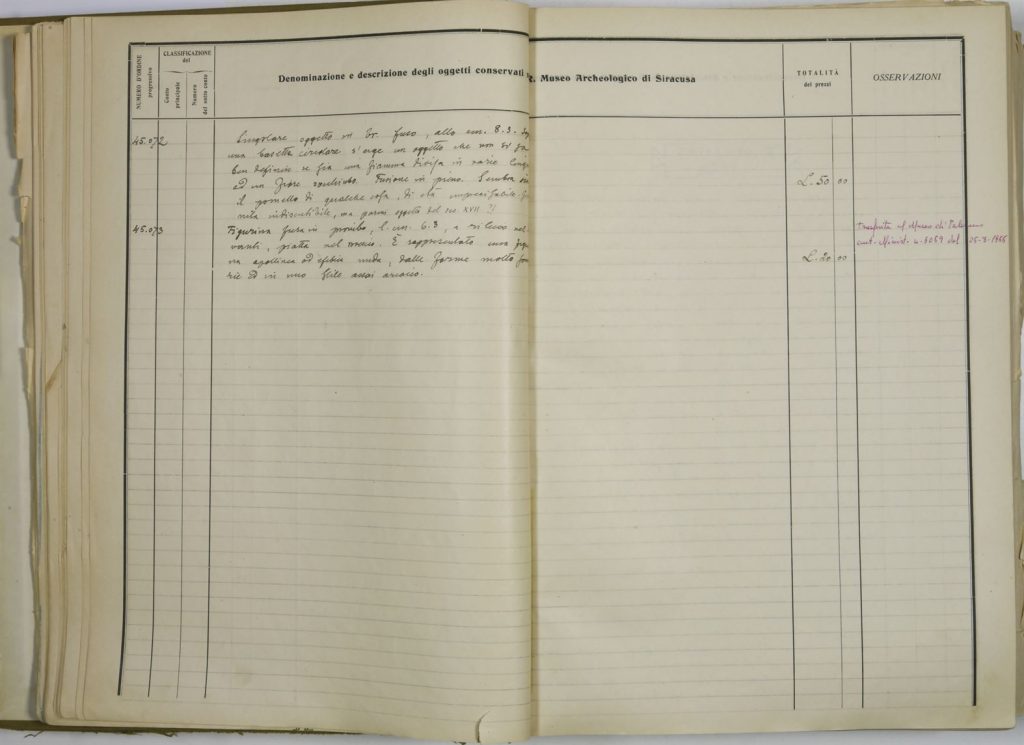 NUMERO D'ORDINE progressivo
CLASSIFICAZIONE del
Conto principale
Numero del sotto conto
Denominazione e descrizione degli oggetti conservati R. Museo Archeologico di Siracusa
TOTALITÀ dei prezzi
OSSERVAZIONI
45.072
Singolare oggetto in br. fuso, alto cm. 8.3.
una basetta circolare s'erge un oggetto che non si
ben definire se sia una fiamma divisa in varie lingue
ad un fiore. Fusione in pieno. Sembra
il pomello di qualche cosa, di età imprecisabile.
indiscutibile, ma parmi oggetto del sec. XVII ?!
L. 50 00
45.073
Figurina fusa in piombo, l. cm. 6.3, a rilievo nel
piatta nel rovescio. È rappresentata una
apollinea od efebica nuda, dalle forme molto
ed in uno stile assai arcaico.
L. 20 00
trasferita al Museo di Palermo
aut. Minist. n. 3059 del 1966